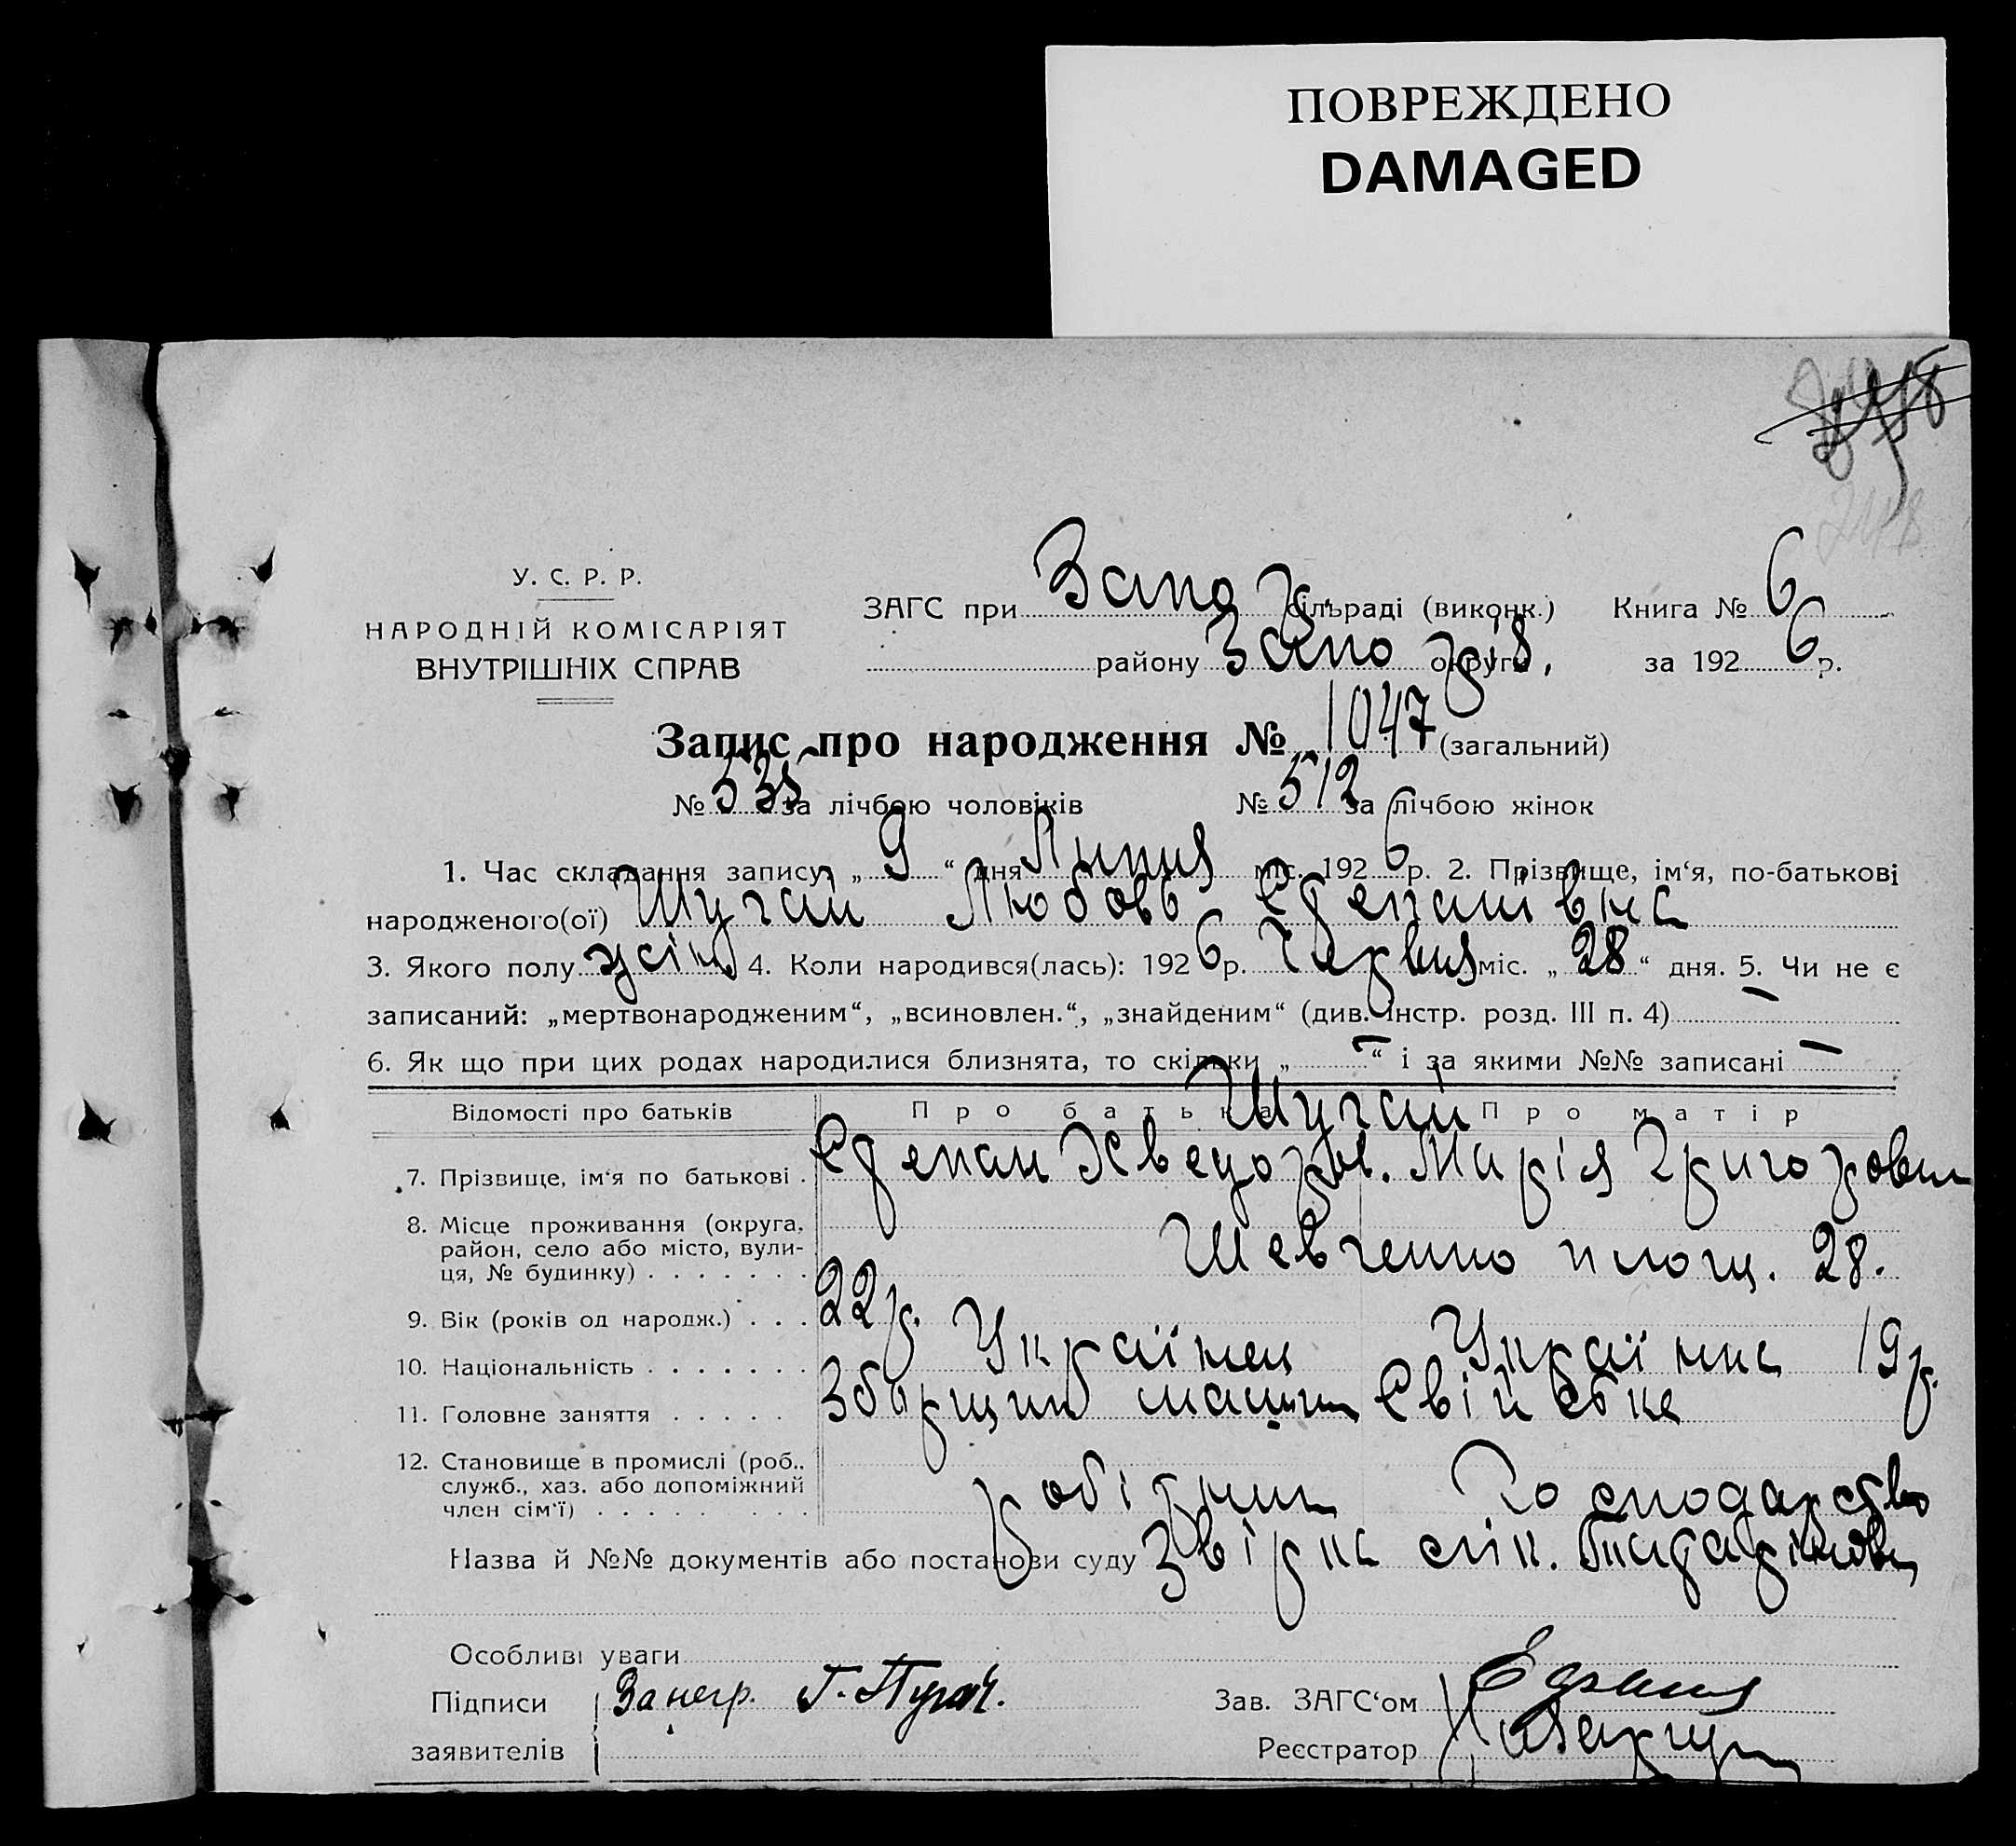 ПОВРЕЖДЕНО
DAMAGED
У. С. Р. Р.
НАРОДНІЙ КОМІСАРІЯТ
ВНУТРІШНІХ СПРАВ
ЗАГС при Запоз. сільраді (виконк.) Книга № 6
району Запоріз. округи, за 192 6 р.
Запис про народження № 1047 (загальний)
№ 535 за лічбою чоловіків № 512 за лічбою жінок
1. Час складання запису „ 9 “ дня Липня міс. 192 6 р. 2. Прізвище, ім‘я, по-батькові
народженого(ої) Шугай Любовь Степанівна
3. Якого полу жіноч 4. Коли народився(лась): 192 6 р. Червня міс. „ 28 “ дня. 5. Чи не є
записаний: „мертвонародженим“, „всиновлен.“, „знайденим“ (див. Інстр. розд. III п. 4) –
6. Як що при цих родах народилися близнята, то скільки „ – “ і за якими №№ записані –
Відомості про батьків Про батька Про матір
Шугай
7. Прізвище, ім‘я по батькові . Степан Хведоров. Марія Григоровна
8. Місце проживання (округа,
район, село або місто, вули-
ця, № будинку) . . . . . . . Шевченко площ. 28.
9. Вік (років од народж.) . . . 22 р. 19 р.
10. Національність . . . . . . . Українец Українка
11. Головне заняття . . . . . Зборщик машин
12. Становище в промислі (роб.,
служб., хаз. або допоміжний
член сім‘ї) . . . . . . . . робітник Господарство
Назва й №№ документів або постанови суду
Особливі уваги
Підписи Г. Пугач.
заявителів
Зав. ЗАГС‘ом
Реєстратор